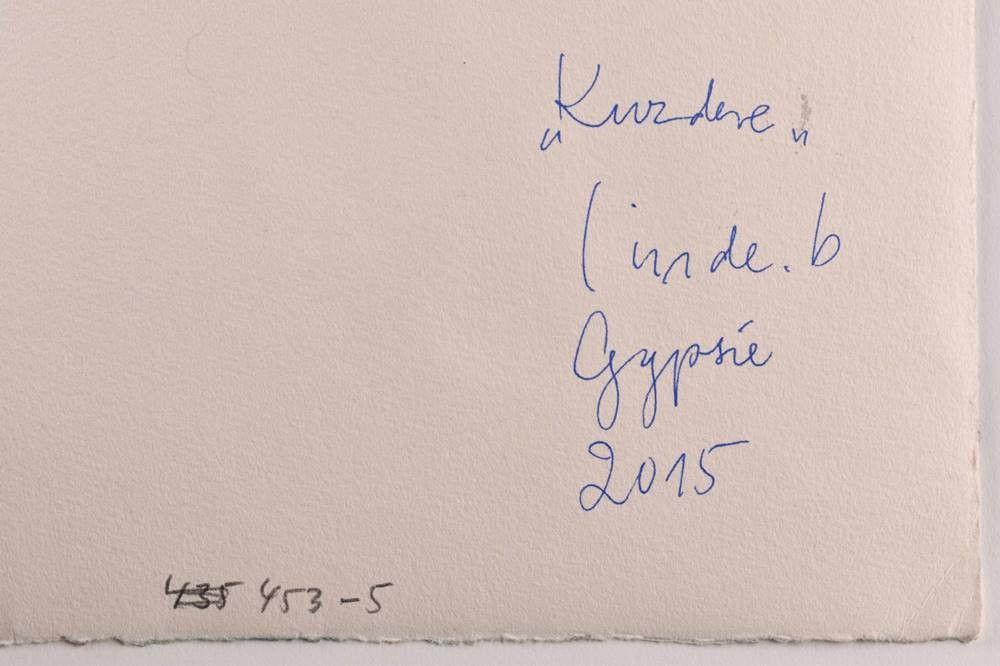 „Kurdere"
linde.b
Gypsie
2015
435 453-5